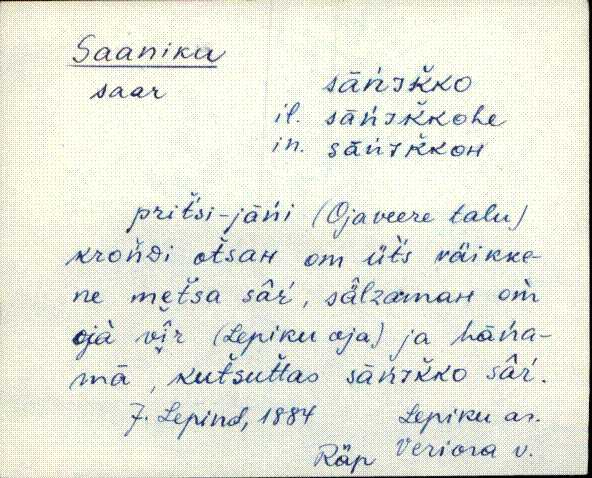 Saaniku
saar
sāńɪk̆ko
il. sāńɪk̆kohe
in. sāńɪk̆koʜ
prit̆si-jāńi (Ojaveere talu)
krońdi ot̆saʜ om üt̆s väikke-
ne met̆sa sâŕ, sälzamaʜ om̀
ojà vîr (Lepiku oja) ja hāńa-
mā, kut̆sut̆tas sāńɪk̆ko sâŕ.
J. Lepind, 1884 Lepiku as.
Räp Veriora v.